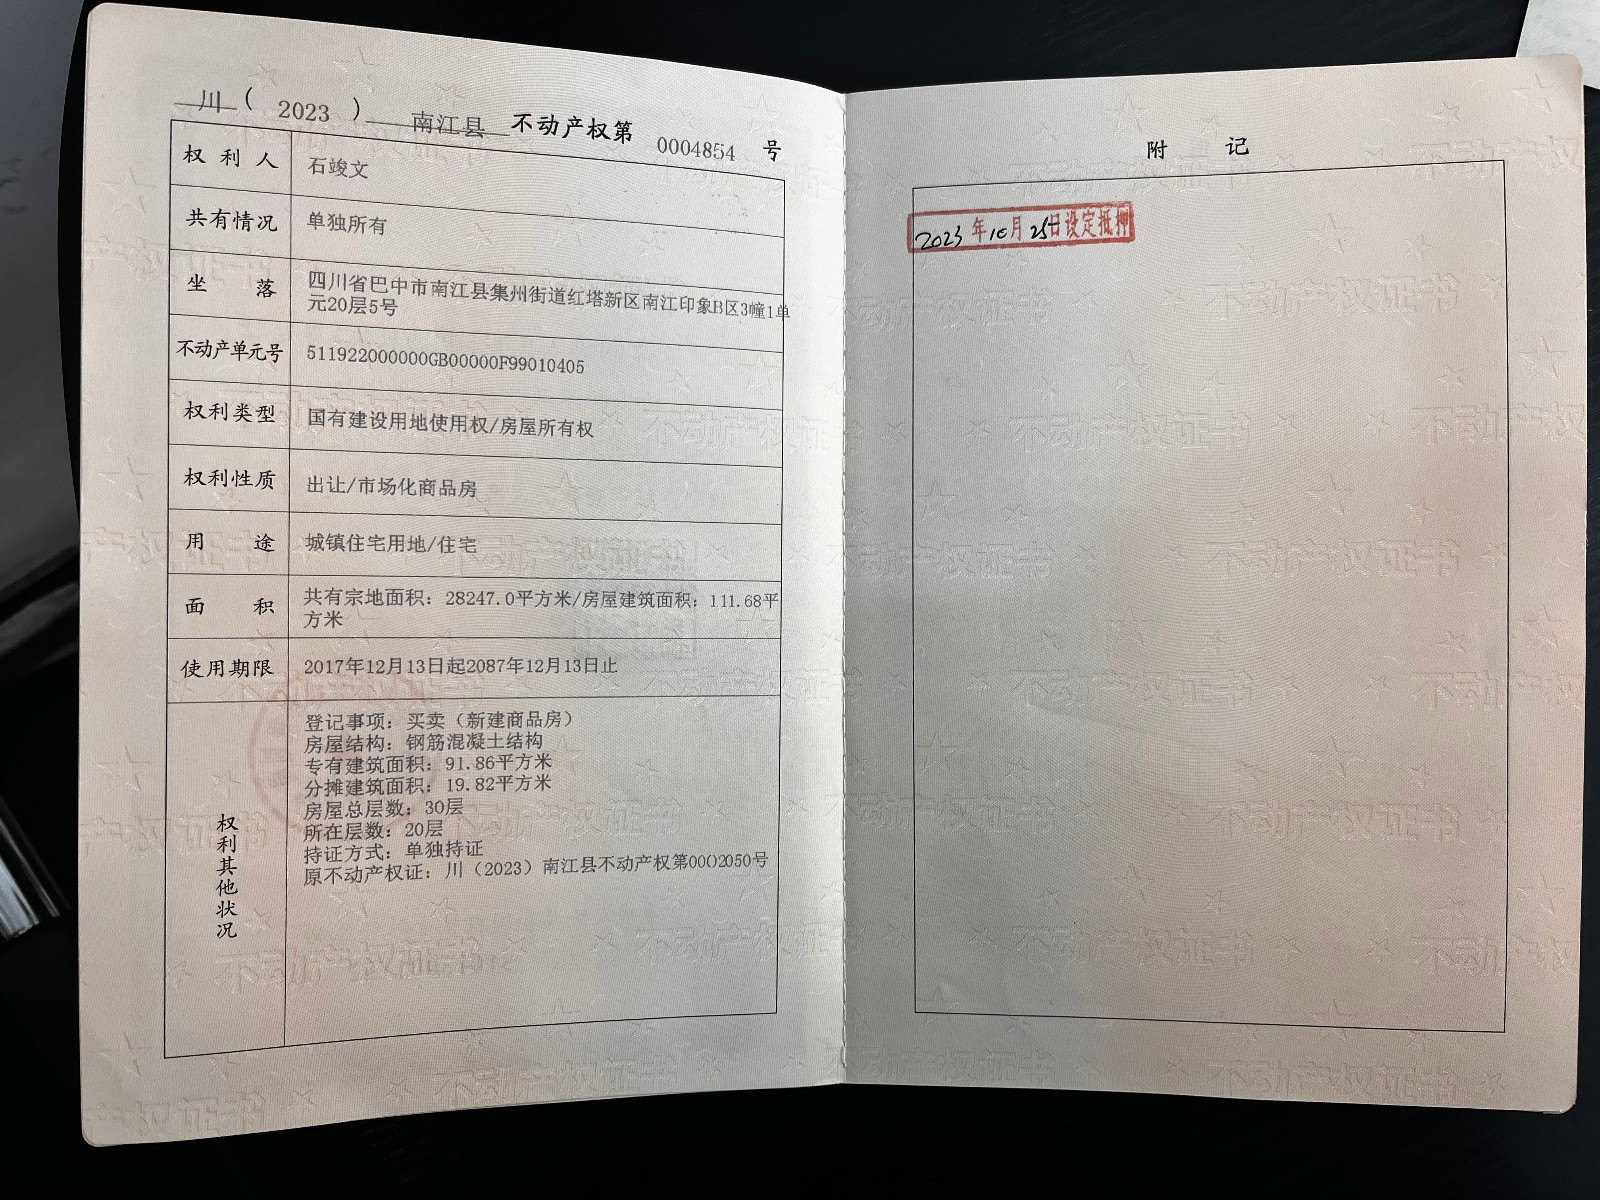 川（2023）南江县不动产权第0004854号
权利人 石竣文
共有情况 单独所有
坐落 四川省巴中市南江县集州街道红塔新区南江印象B区3幢1单
元20层5号
不动产单元号 511922000000GB00000F99010405
权利类型 国有建设用地使用权/房屋所有权
权利性质 出让/市场化商品房
用途 城镇住宅用地/住宅
面积 共有宗地面积：28247.0平方米/房屋建筑面积：111.68平
方米
使用期限 2017年12月13日起2087年12月13日止
权利其他状况
登记事项：买卖（新建商品房）
房屋结构：钢筋混凝土结构
专有建筑面积：91.86平方米
分摊建筑面积：19.82平方米
房屋总层数：30层
所在层数：20层
持证方式：单独持证
原不动产权证：川（2023）南江县不动产权第0002050号
附记
2023年10月25日设定抵押
不动产权证书